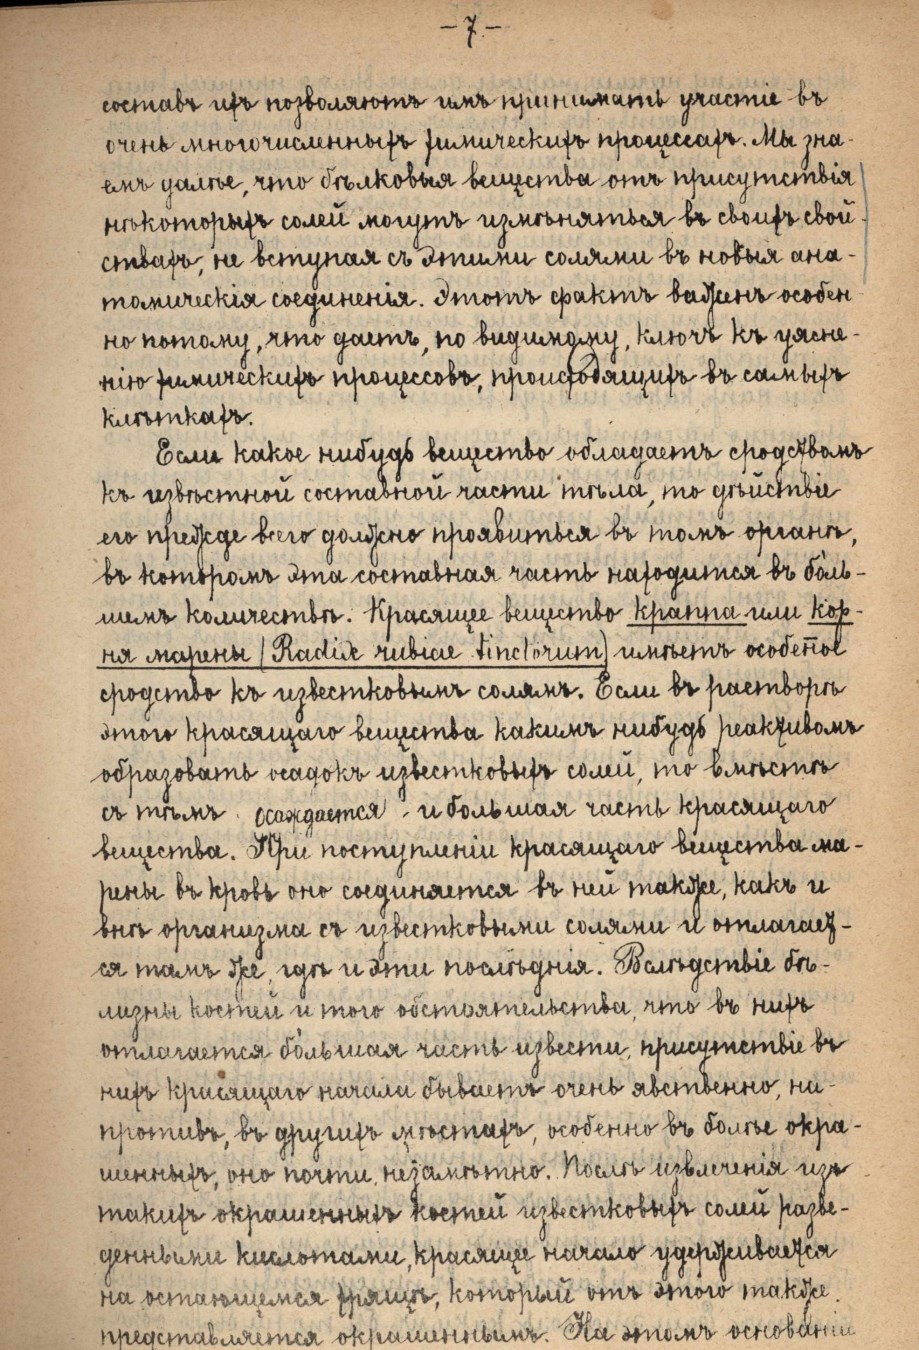 – 7. –
составъ ихъ позволяютъ имъ принимать участіе въ
очень многочисленныхъ химическихъ процессахъ. Мы зна-
емъ далѣе, что бѣлковыя вещества отъ присутствія
нѣкоторыхъ солей могутъ измѣняться въ своихъ свой-
ствахъ, не вступая съ этими солями въ новыя ана-
томическія соединенія. Этотъ фактъ важенъ особен-
но потому, что даетъ, по видимому, ключъ къ уясне-
нію химическихъ процессовъ, происходящихъ въ самыхъ
клѣткахъ.
Если какое нибудь вещество обладаетъ сродствомъ
къ извѣстной составной части тѣла, то дѣйствіе
его прежде всего должно проявиться въ томъ органѣ,
въ которомъ эта составная часть находится въ боль-
шемъ количествѣ. Красящее вещество краппа или кор-
ня марены (Radix rubiae tinctorum) имѣетъ особенное
сродство къ известковымъ солямъ. Если въ растворѣ
этого красящаго вещества какимъ нибудь реактивомъ
образовать осадокъ известковыхъ солей, то вмѣстѣ
съ тѣмъ осаждается и большая часть красящаго
вещества. При поступленіи красящаго вещества ма-
рены въ кровь оно соединяется въ ней также, какъ и
внѣ организма съ известковыми солями и отлагает-
ся тамъ же, гдѣ и эти послѣднія. Вслѣдствіе бѣ-
лизны костей и того обстоятельства, что въ нихъ
отлагается бо́льшая часть извести, присутствіе въ
нихъ красящаго начала бываетъ очень явственно, на-
противъ, въ другихъ мѣстахъ, особенно въ болѣе окра-
шенныхъ, оно почти незамѣтно. Послѣ извлеченія изъ
такихъ окрашенныхъ костей известковыхъ солей разве-
денными кислотами, красящее начало удерживается
на остающемся хрящѣ, который отъ этого также
представляется окрашеннымъ. На этомъ основаніи